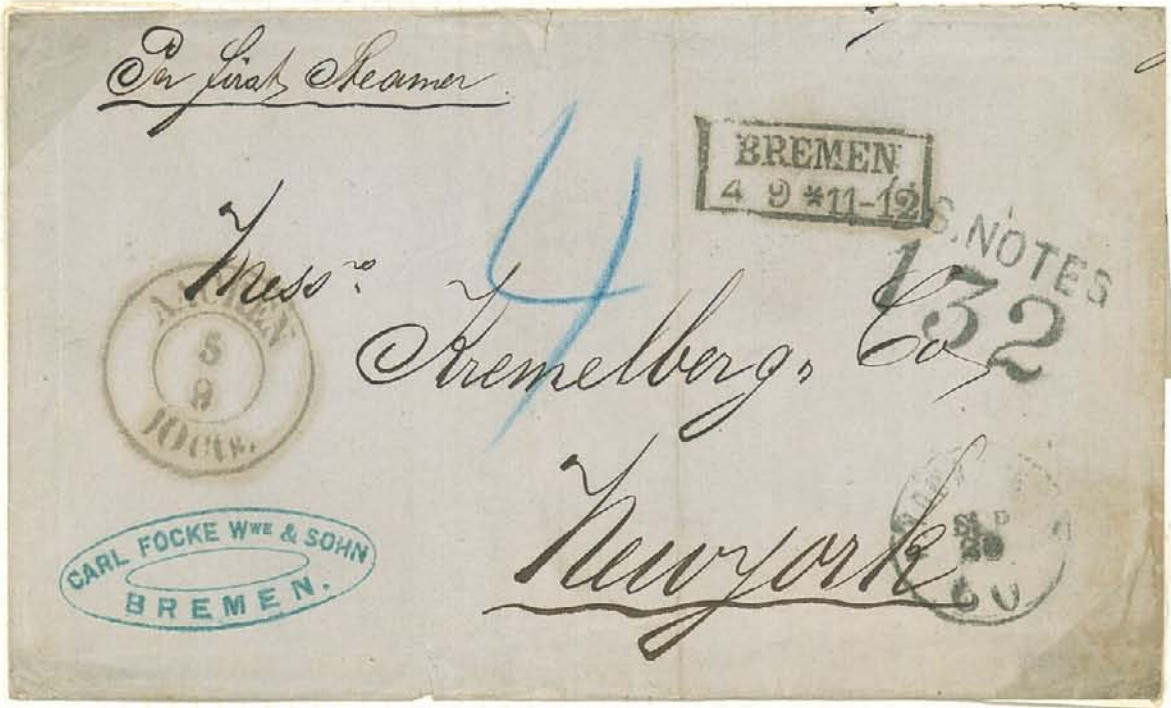 Per first Steamer
BREMEN
4 9 *11-12
S. NOTES
132
Mess.rs
Kremelberg & Co
Newyork
4
AACHEN
5
9
10 Cts.
CARL FOCKE WWE & SOHN
BREMEN.
SEP
20
60